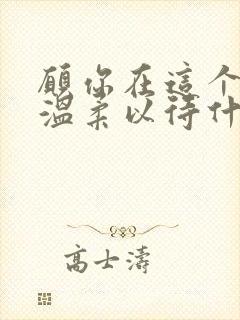 願你在這个
温柔以待什
高士濤